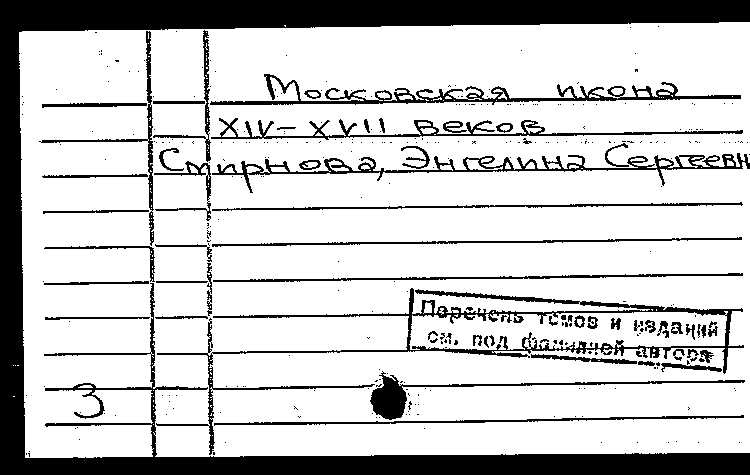 Московская икона
XIV-XVII веков
Смирнова, Энгелина Сергеевн
Перечень томов и изданий
см. под фамилией автора
3